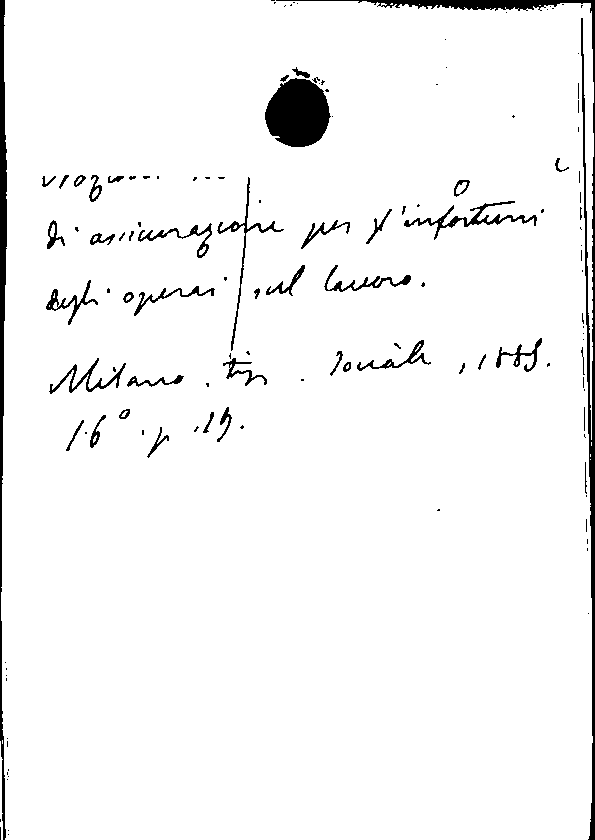 di assicurazione per gl'infortuni
degli operai sul lavoro.
Milano. tip. sociale, 1885.
16° p. 19.